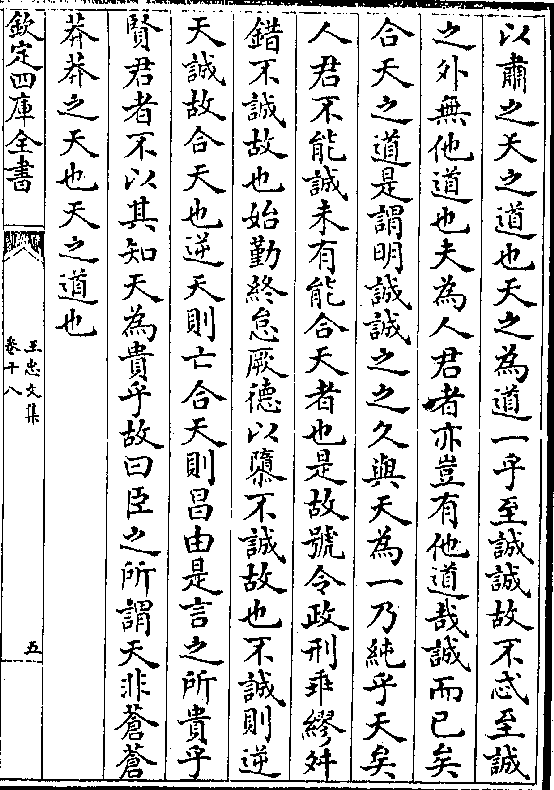 以肅之天之道也天之為道一乎至誠誠故不忒至誠
之外無他道也夫為人君者亦豈有他道哉誠而已矣
合天之道是謂明誠誠之之久與天為一乃純乎天矣
人君不能誠未有能合天者也是故號令政刑乖繆舛
錯不誠故也始勤終怠厥德以隳不誠故也不誠則逆
天誠故合天也逆天則亡合天則昌由是言之所貴乎
賢君者不以其知天為貴乎故曰臣之所謂天非蒼蒼
莽莽之天也天之道也
欽定四庫全書
王忠文集
卷十八
五